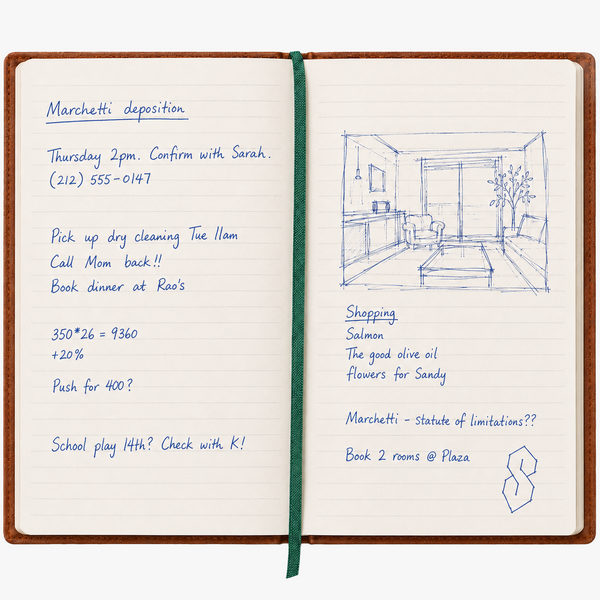 Marchetti deposition
Thursday 2pm. Confirm with Sarah.
(212) 555-0147
Pick up dry cleaning Tue 11am
Call Mom back!!
Book dinner at Rao's
350*26 = 9360
+20%
Push for 400?
School play 14th? Check with K!
Shopping
Salmon
The good olive oil
flowers for Sandy
Marchetti - statute of limitations??
Book 2 rooms @ Plaza